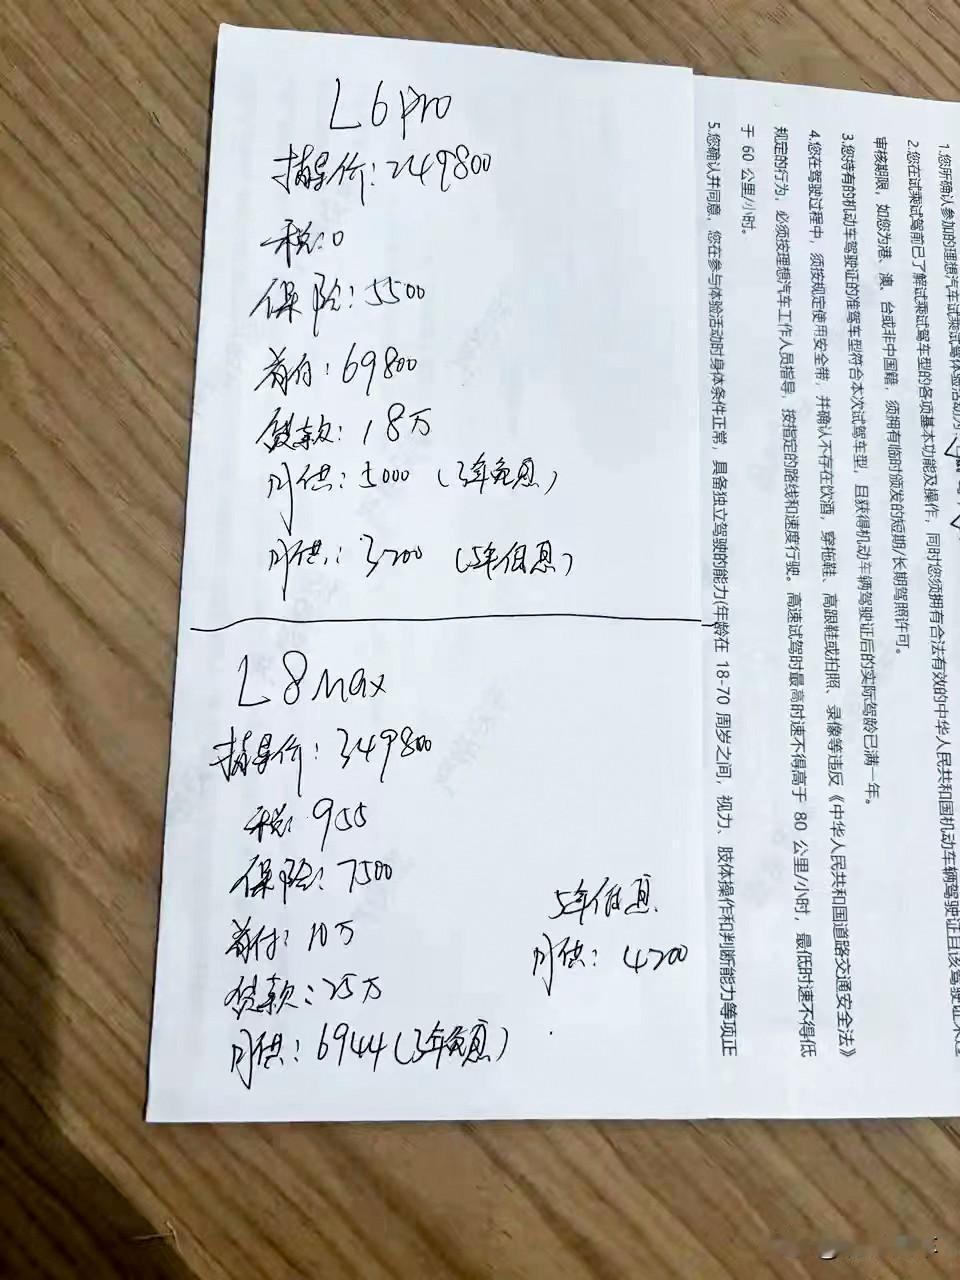 L6 Pro
指导价:249800
税:0
保险:5500
首付:69800
贷款:18万
月供:5000(3年免息)
月供:3200(5年低息)
L8 Max
指导价:349800
税:955
保险:7500
首付:10万
贷款:25万
月供:6944(3年免息)
5年低息
月供:4200
1.您所确认参加的理想汽车试乘试驾体验活动为
2.您在试乘试驾前已了解试乘试驾车型的各项基本功能及操作,同时您须拥有合法有效的中华人民共和国机动车驾驶证且该驾驶证未过
审核期限,如您为港、澳、台或非中国籍,须拥有临时颁发的短期/长期驾照许可。
3.您持有的机动车驾驶证的准驾车型符合本次试驾车型,且获得机动车辆驾驶证后的实际驾龄已满一年。
4.您在驾驶过程中,须按规定使用安全带,并确认不存在饮酒,穿拖鞋、高跟鞋或拍照、录像等违反《中华人民共和国道路交通安全法》
规定的行为,必须按理想汽车工作人员指导,按指定的路线和速度行驶。高速试驾时最高时速不得高于 80 公里/小时,最低时速不得低
于 60 公里/小时。
5.您确认并同意,您在参与体验活动时身体条件正常,具备独立驾驶的能力(年龄在 18-70 周岁之间,视力、肢体操作和判断能力等项正